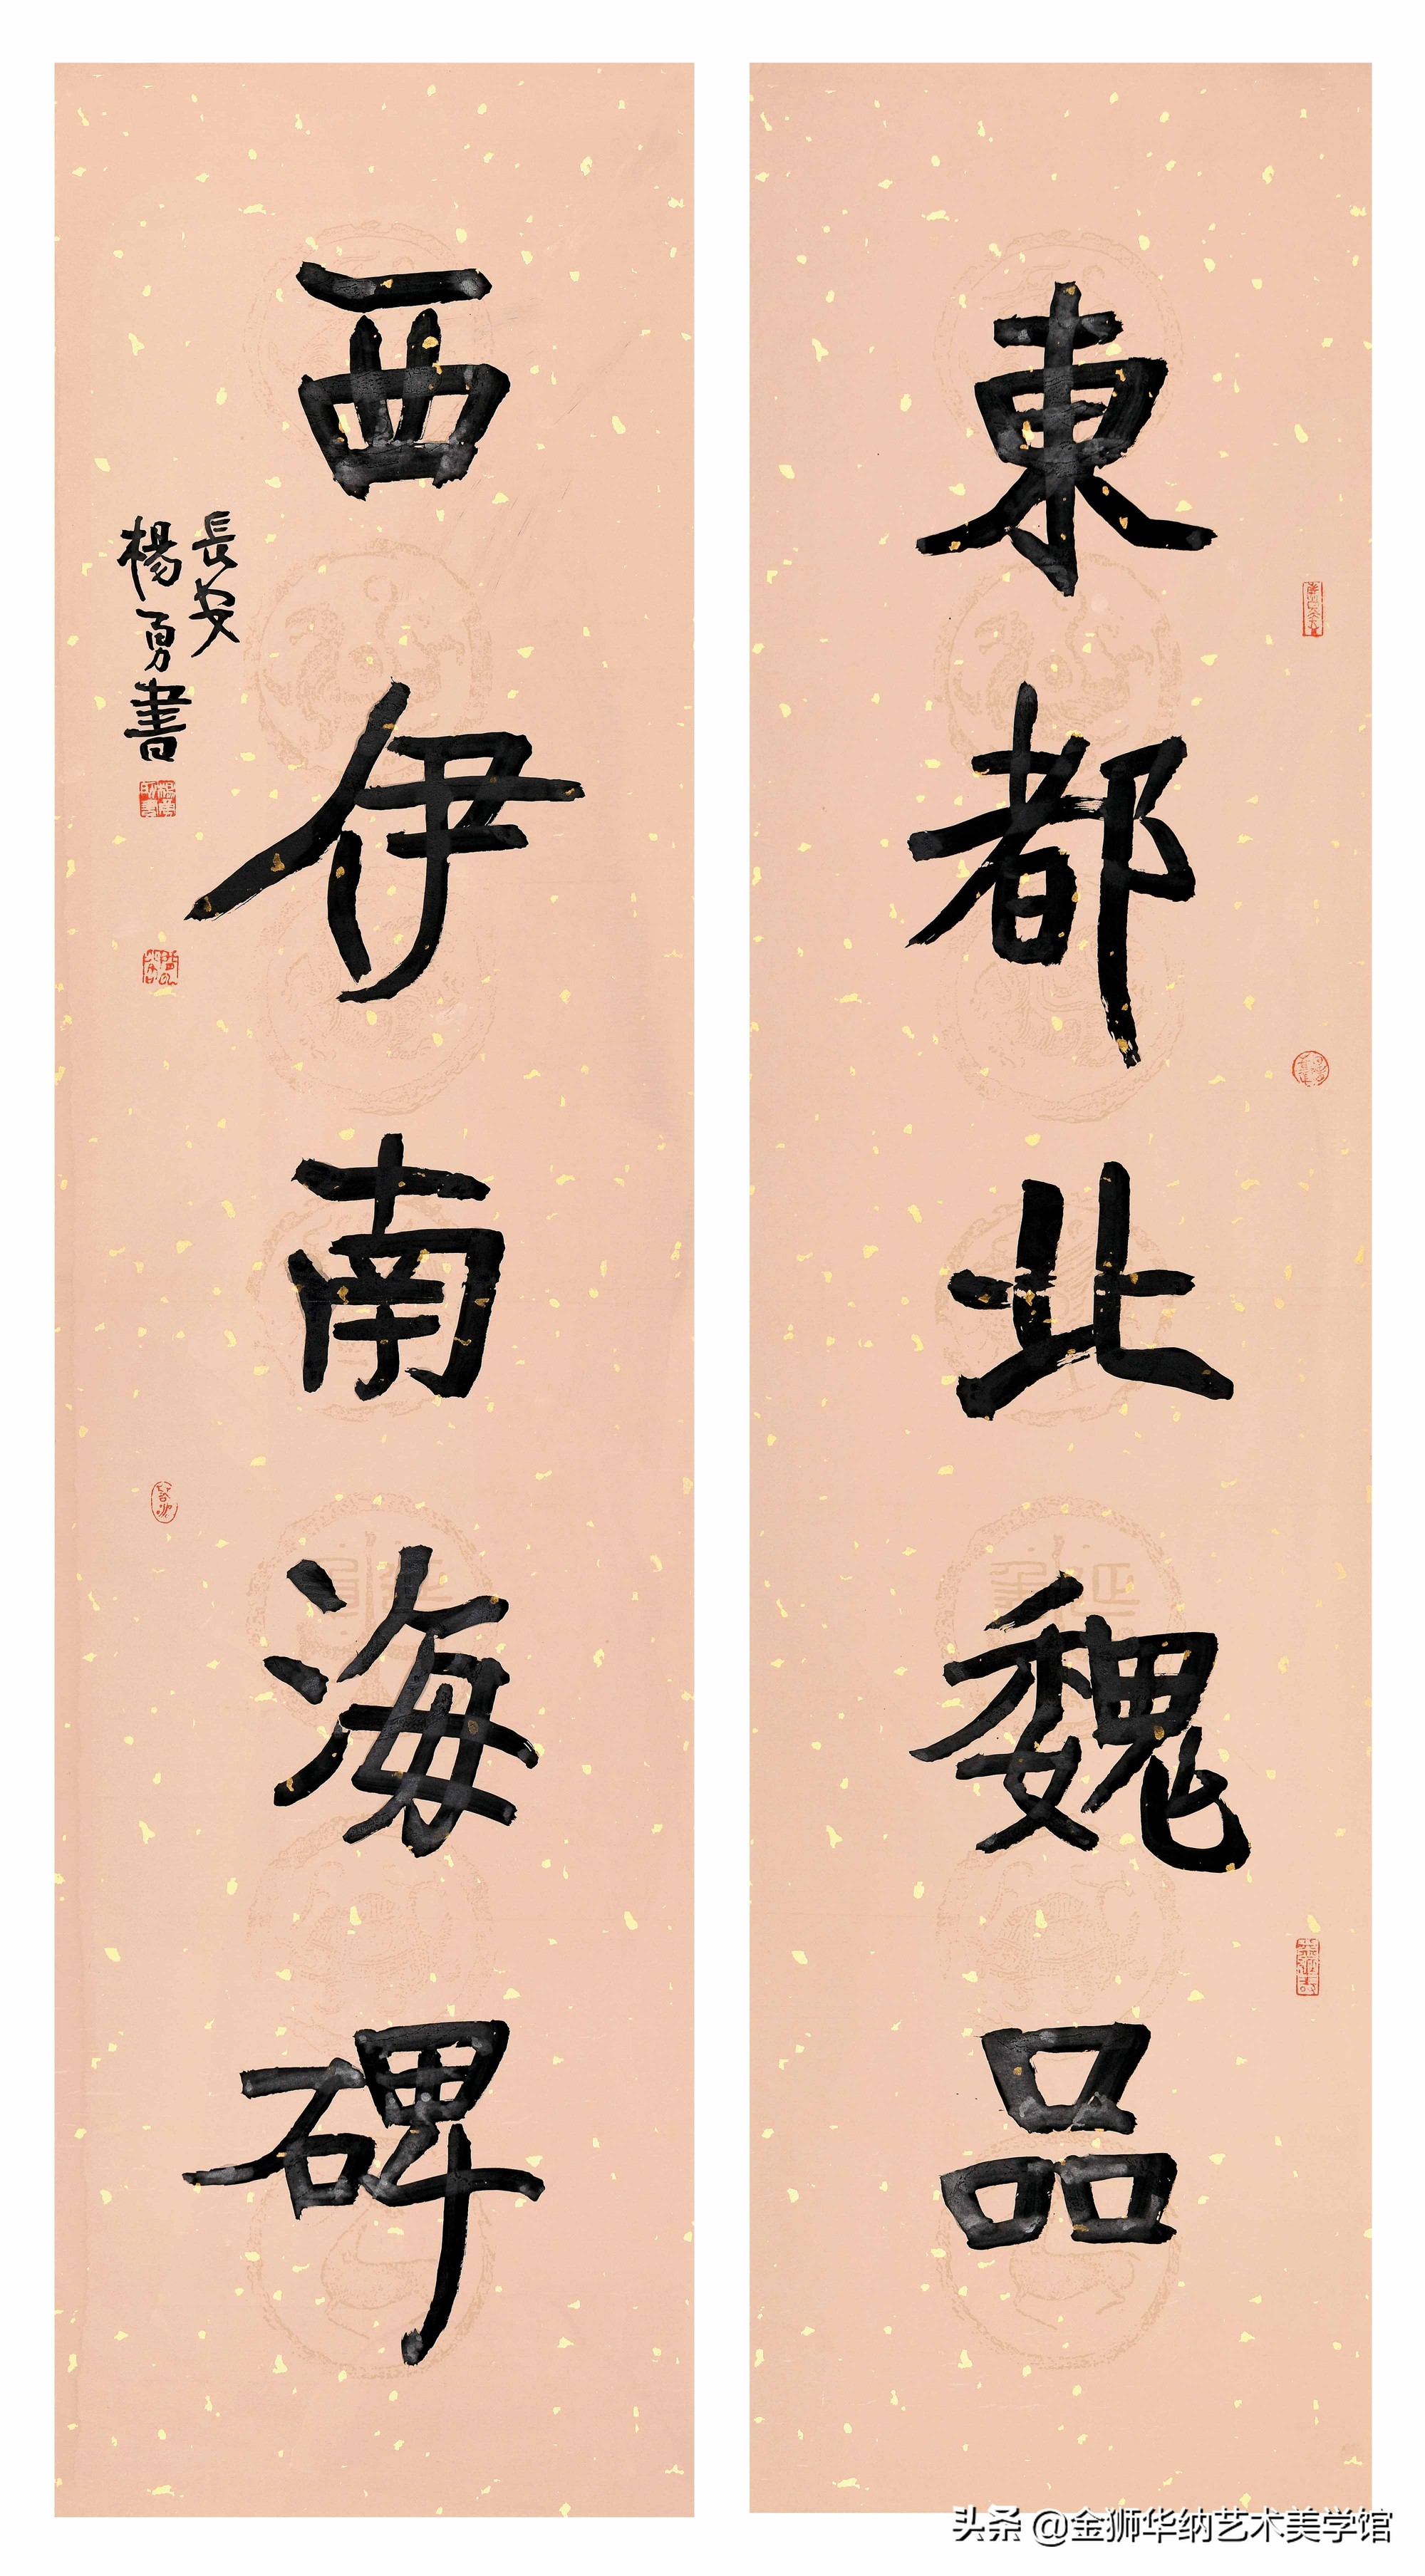 東都北魏品
西伊南海碑
長安
楊勇書
头条 @金狮华纳艺术美学馆